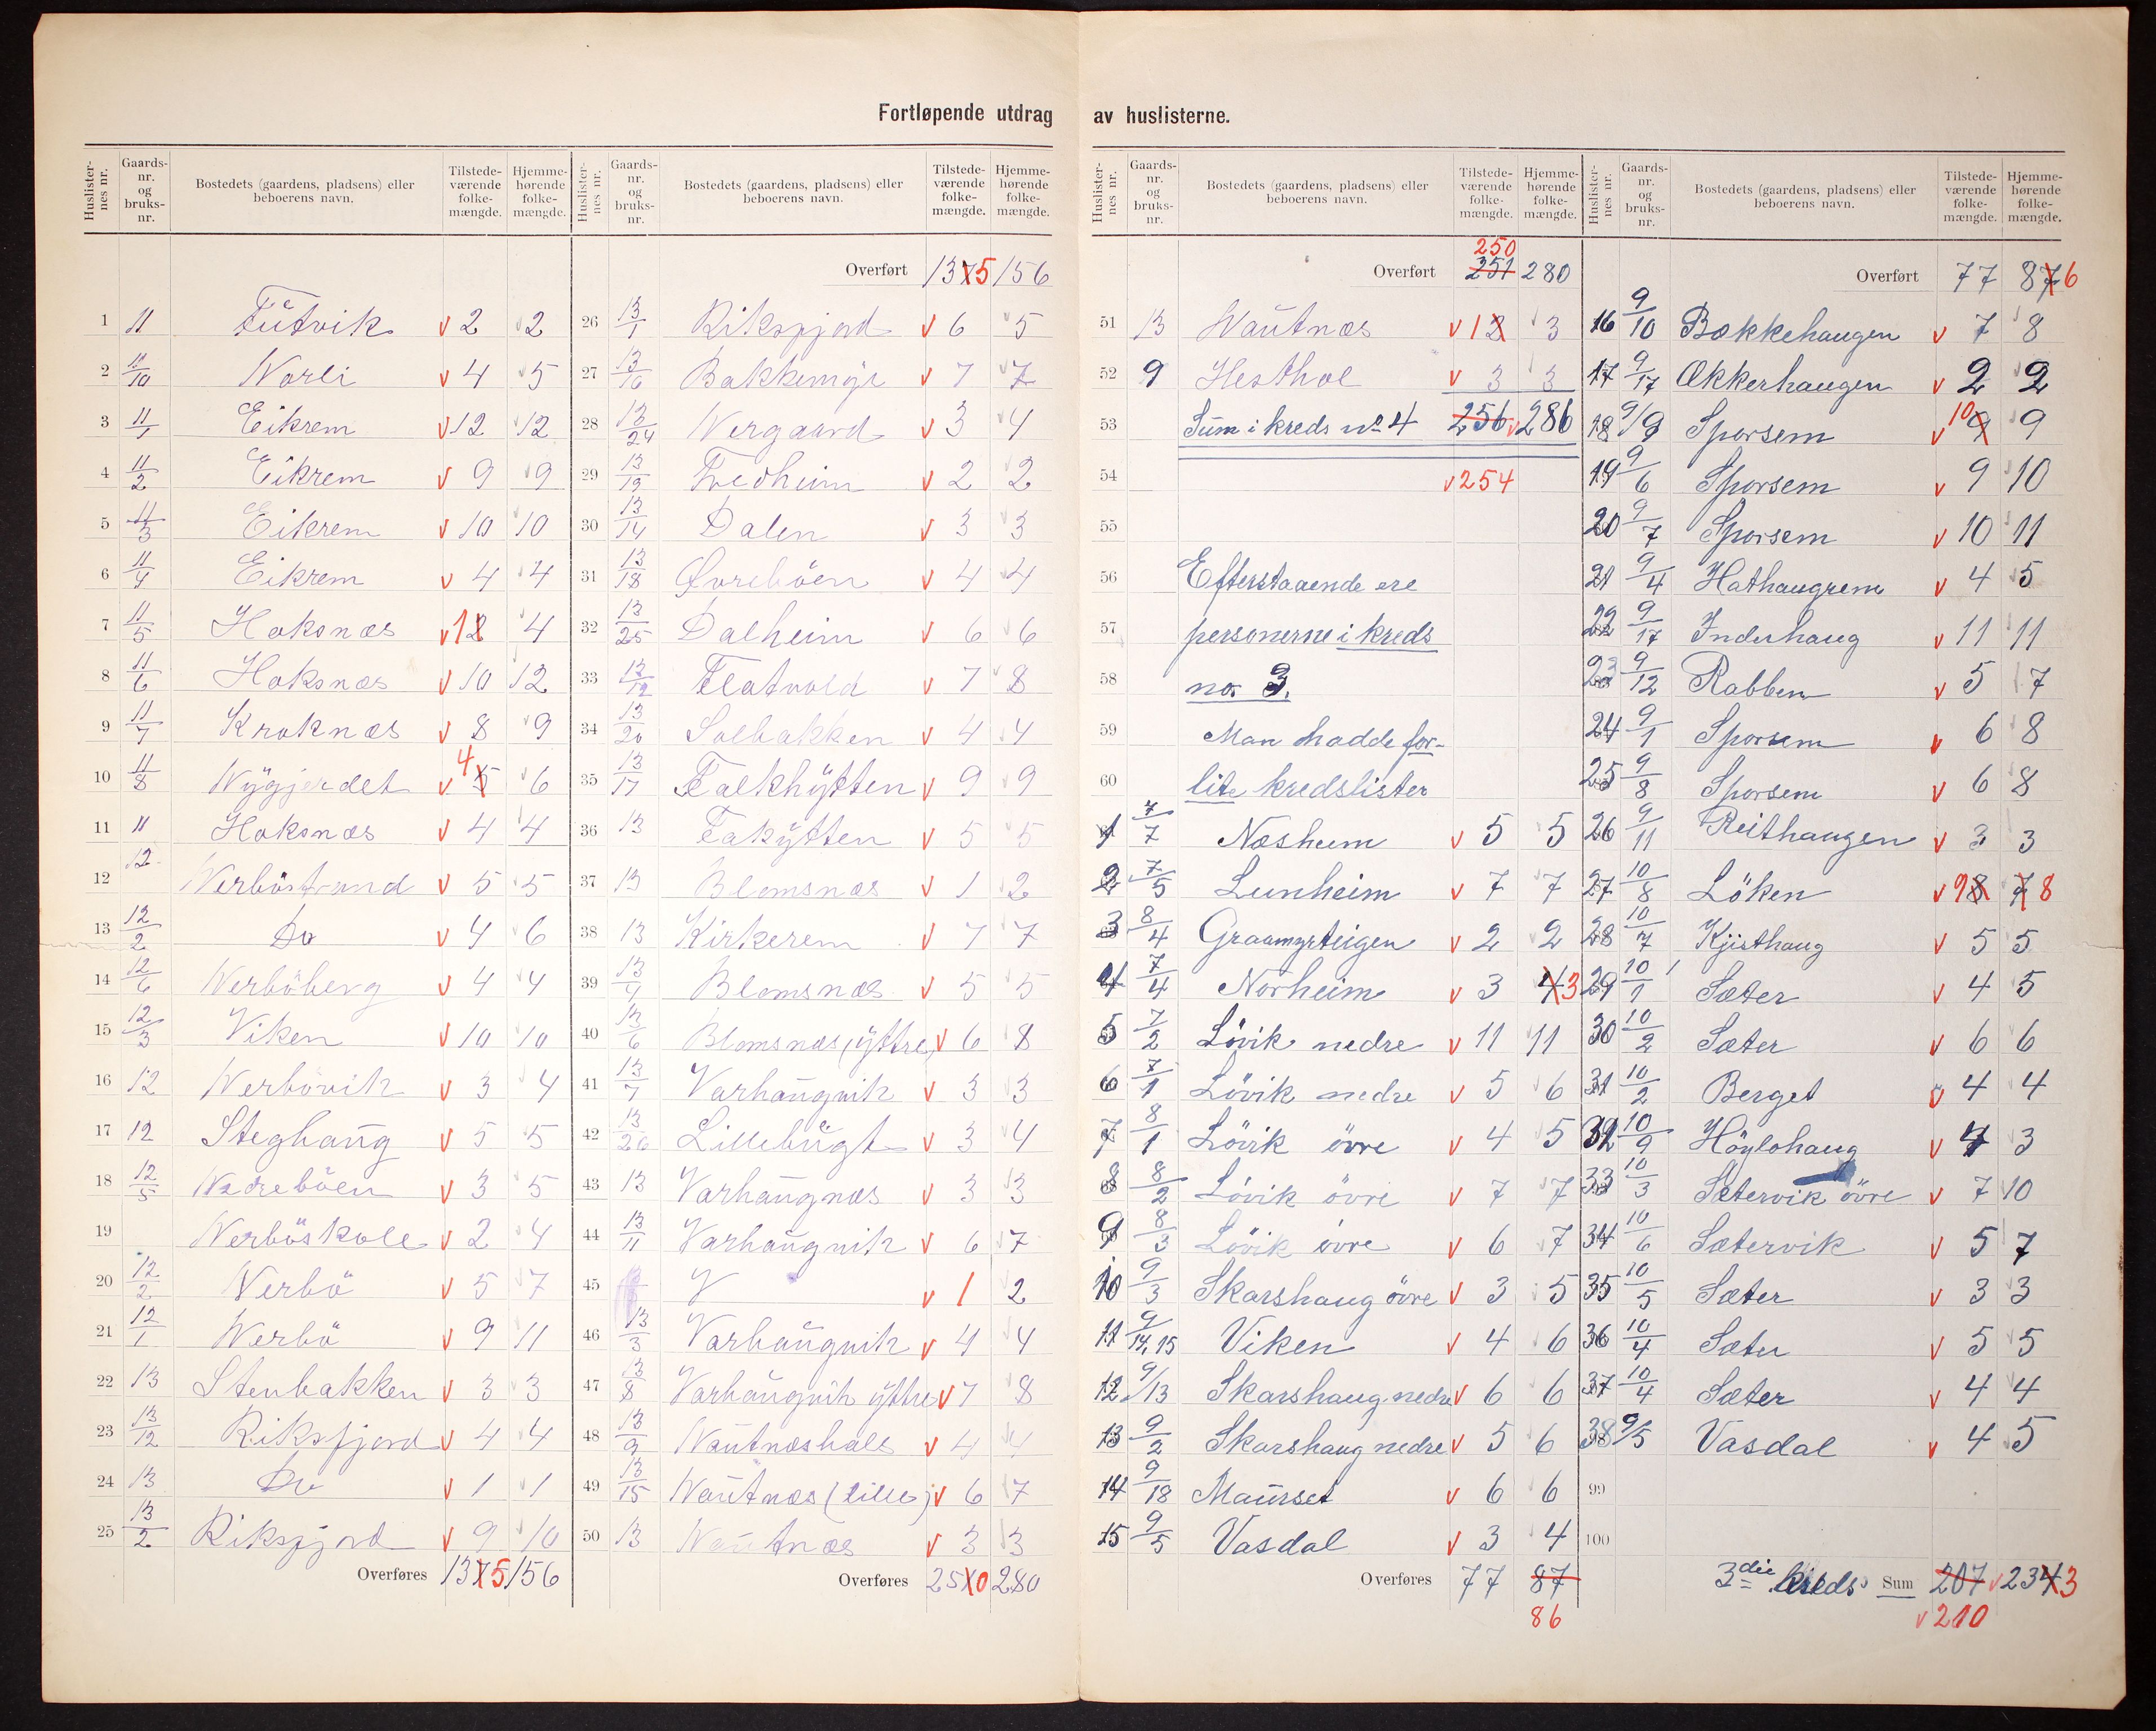 Fortløpende utdrag av huslisterne.
Huslister-nes nr. | Gaards-nr. og bruks-nr. | Bostedets (gaardens, pladsens) eller beboerens navn. | Tilstede-værende folke-mængde. | Hjemme-hørende folke-mængde.
1 11 Futvik 2 2
2 11/10 Norli 4 5
3 11/1 Eikrem 12 12
4 11/2 Eikrem 9 9
5 11/3 Eikrem 10 10
6 11/4 Eikrem 4 4
7 11/5 Hoksnæs 1 4
8 11/6 Hoksnæs 10 12
9 11/7 Kroknæs 8 9
10 11/8 Nÿgjerdet 4 6
11 11 Hoksnæs 4 4
12 12 Nerböstrand 5 5
13 12/2 Do 4 6
14 12/6 Nerböberg 4 4
15 12/3 Viken 10 10
16 12 Nerbövik 3 4
17 12 Steghaug 5 5
18 12/5 Nedreböen 3 5
19 Nerböskole 2 4
20 12/2 Nerbö 5 7
21 12/1 Nerbö 9 11
22 13 Stenbakken 3 3
23 13/12 Riksfjord 4 4
24 13 Do 1 1
25 13/2 Riksfjord 9 10
Overføres 135 156
Huslister-nes nr. | Gaards-nr. og bruks-nr. | Bostedets (gaardens, pladsens) eller beboerens navn. | Tilstede-værende folke-mængde. | Hjemme-hørende folke-mængde.
Overført 135 156
26 13/1 Riksfjord 6 5
27 13/16 Bakkemyr 7 7
28 13/24 Nergaard 3 4
29 13/19 Fredheim 2 2
30 13/14 Dalen 3 3
31 13/18 Øvreböen 4 4
32 13/25 Dalheim 6 6
33 Flatvold 7 8
34 13/20 Solbakken 4 4
35 13/17 Falkhÿtten 9 9
36 13 Fakÿtten 5 5
37 13 Blomsnæs 1 2
38 13 Kirkerem 7 7
39 13/4 Blomsnæs 5 5
40 13/6 Blomsnæs, ÿttre, 6 8
41 13/7 Varhaugvik 3 3
42 13/26 Lillebugt 3 4
43 13 Varhaugnæs 3 3
44 13/11 Varhaugvik 6 7
45 1 2
46 13/3 Varhaugvik 4 4
47 13/8 Varhaugvik ÿttre 7 8
48 13/9 Nautnæshals 4 4
49 13/15 Nautnæs (lille) 6 7
50 13 Nautnæs 3 3
Overføres 250 280
Huslister-nes nr. | Gaards-nr. og bruks-nr. | Bostedets (gaardens, pladsens) eller beboerens navn. | Tilstede-værende folke-mængde. | Hjemme-hørende folke-mængde.
250
Overført 251 280
51 13 Nautnæs 1 3
52 9 Hesthol 3 3
53 Sum i kreds no 4 256 286
54 254
55
56 Efterstaaende ere
57 personerne i kreds
58 no. 3.
59 Man hadde for-
60 lite kredslister
1 7/7 Næsheim 5 5
2 7/5 Lunheim 7 7
3 8/4 Graamyrteigen 2 2
4 7/4 Norheim 3 3
5 7/2 Lövik nedre 11 11
6 7/1 Lövik nedre 5 6
7 8/1 Lövik övre 4 5
8 8/2 Lövik övre 7 7
9 8/3 Lövik övre 6 7
10 9/3 Skarshaug övre 3 5
11 9/14,15 Viken 4 6
12 9/13 Skarshaug nedre 6 6
13 9/2 Skarshaug nedre 5 6
14 9/18 Maurset 6 6
15 9/5 Vasdal 3 4
Overføres 77 87
86
Huslister-nes nr. | Gaards-nr. og bruks-nr. | Bostedets (gaardens, pladsens) eller beboerens navn. | Tilstede-værende folke-mængde. | Hjemme-hørende folke-mængde.
Overført 77 86
16 9/10 Bakkehaugen 7 8
17 9/17 Økkerhaugen 2 2
18 9/9 Sporsem 10 9
19 9/6 Sporsem 9 10
20 9/7 Sporsem 10 11
21 9/4 Hathaugrem 4 5
22 9/17 Inderhaug 11 11
23 9/12 Rabben 5 7
24 9/1 Sporsem 6 8
25 9/8 Sporsem 6 8
26 9/11 Reithaugen 3 3
27 10/8 Löken 9 8
28 10/7 Kjisthaug 5 5
29 10/1 Sæter 4 5
30 10/2 Sæter 6 6
31 10/2 Berget 4 4
32 10/9 Höylohaug 4 3
33 10/3 Sætervik övre 7 10
34 10/6 Sætervik 5 7
35 10/5 Sæter 3 3
36 10/4 Sæter 5 5
37 10/4 Sæter 4 4
38 9/5 Vasdal 4 5
99
100
3die kreds Sum 207 233
210